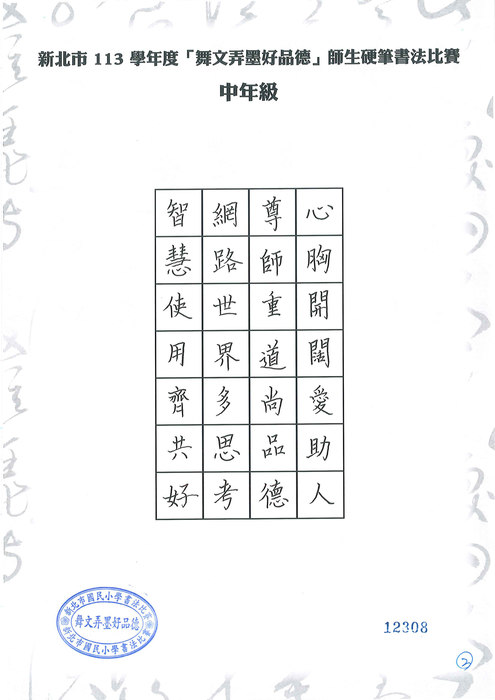 新北市 113 學年度「舞文弄墨好品德」師生硬筆書法比賽
中年級
心胸開闊愛助人
尊師重道尚品德
網路世界多思考
智慧使用齊共好
新北市國民小學書法比賽
舞文弄墨好品德
新北市國民小學書法比賽
12308
2